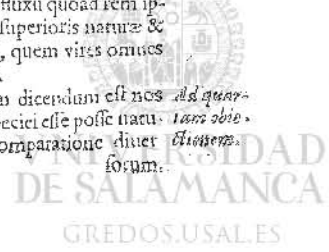 fluxu quoad rem ip-
superioris naturæ &
, quem vires omnes
dicendum est nos
eſſe poſſe natu-
omparatione diuer
ſorum.
Ad quar-
tam obie-
ctionem.
UNIVERSIDAD
DE SALAMANCA
GREDOS.USAL.ES